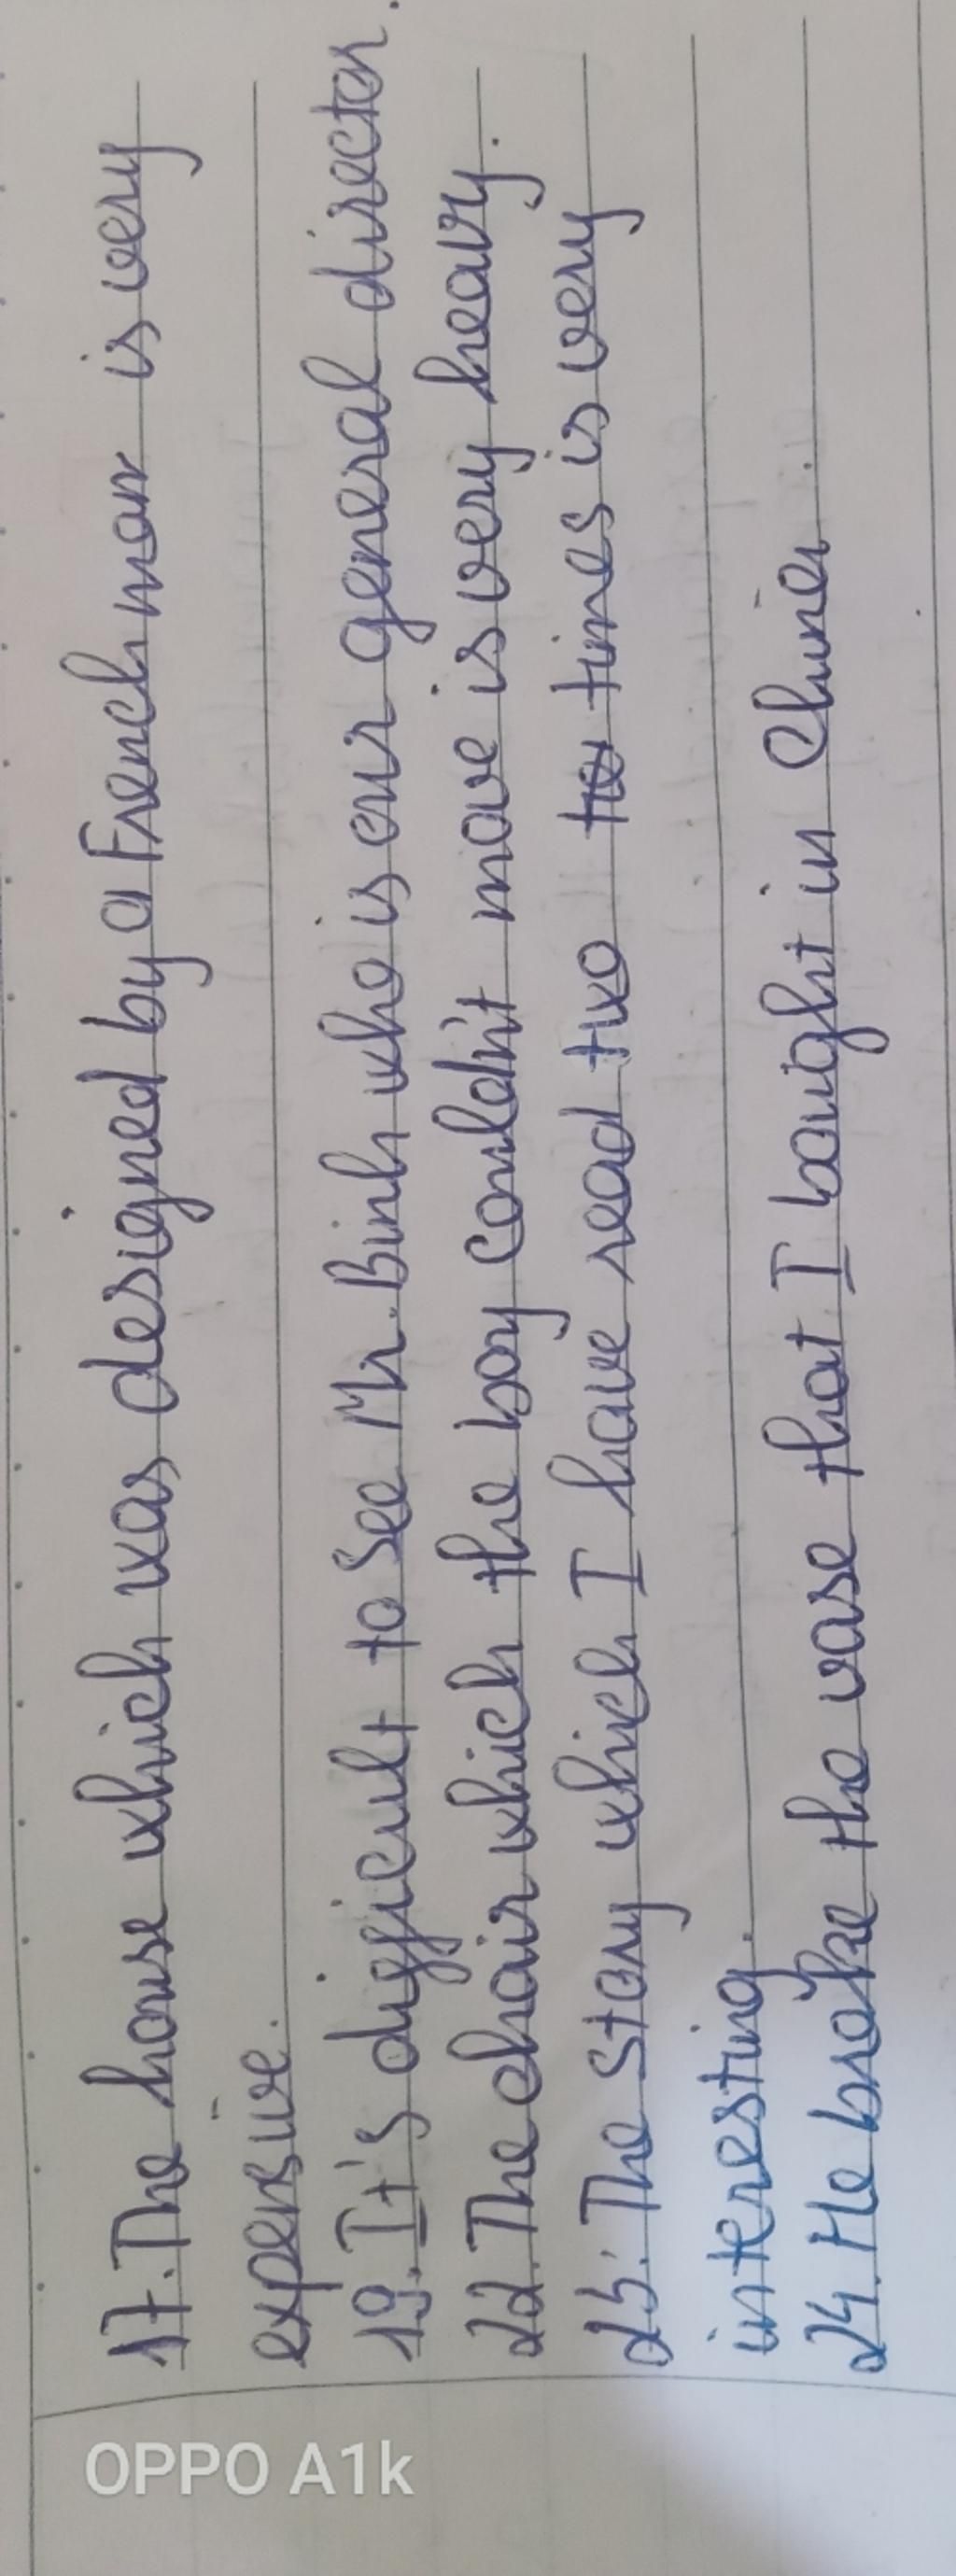 17. The house which was designed by a Frenchman is very
expensive.
19. It's difficult to see Mr. Binh who is our general director.
22. The chair which the boy couldn't move is very heavy.
23. The story which I have read two times is very
interesting.
24. He broke the vase that I bought in China.
OPPO A1k